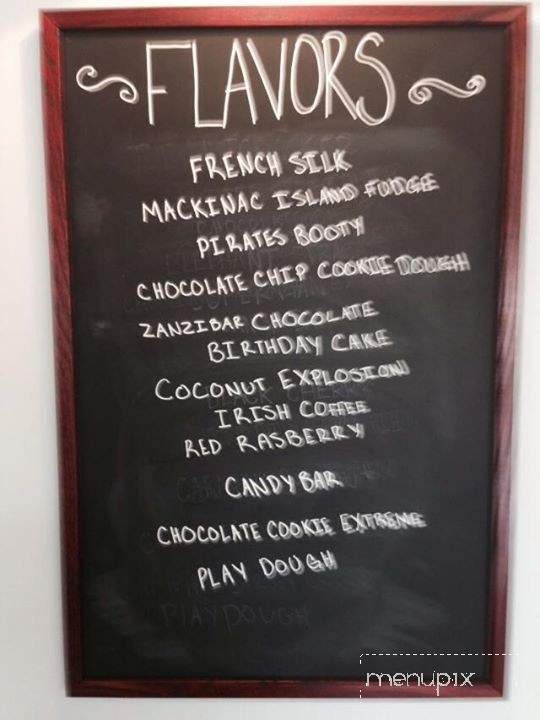 FLAVORS
FRENCH SILK
MACKINAC ISLAND FUDGE
PIRATES BOOTY
CHOCOLATE CHIP COOKIE DOUGH
ZANZIBAR CHOCOLATE
BIRTHDAY CAKE
COCONUT EXPLOSION
IRISH COFFEE
RED RASBERRY
CANDY BAR
CHOCOLATE COOKIE EXTREME
PLAY DOUGH
PLAY DOUGH
menupix